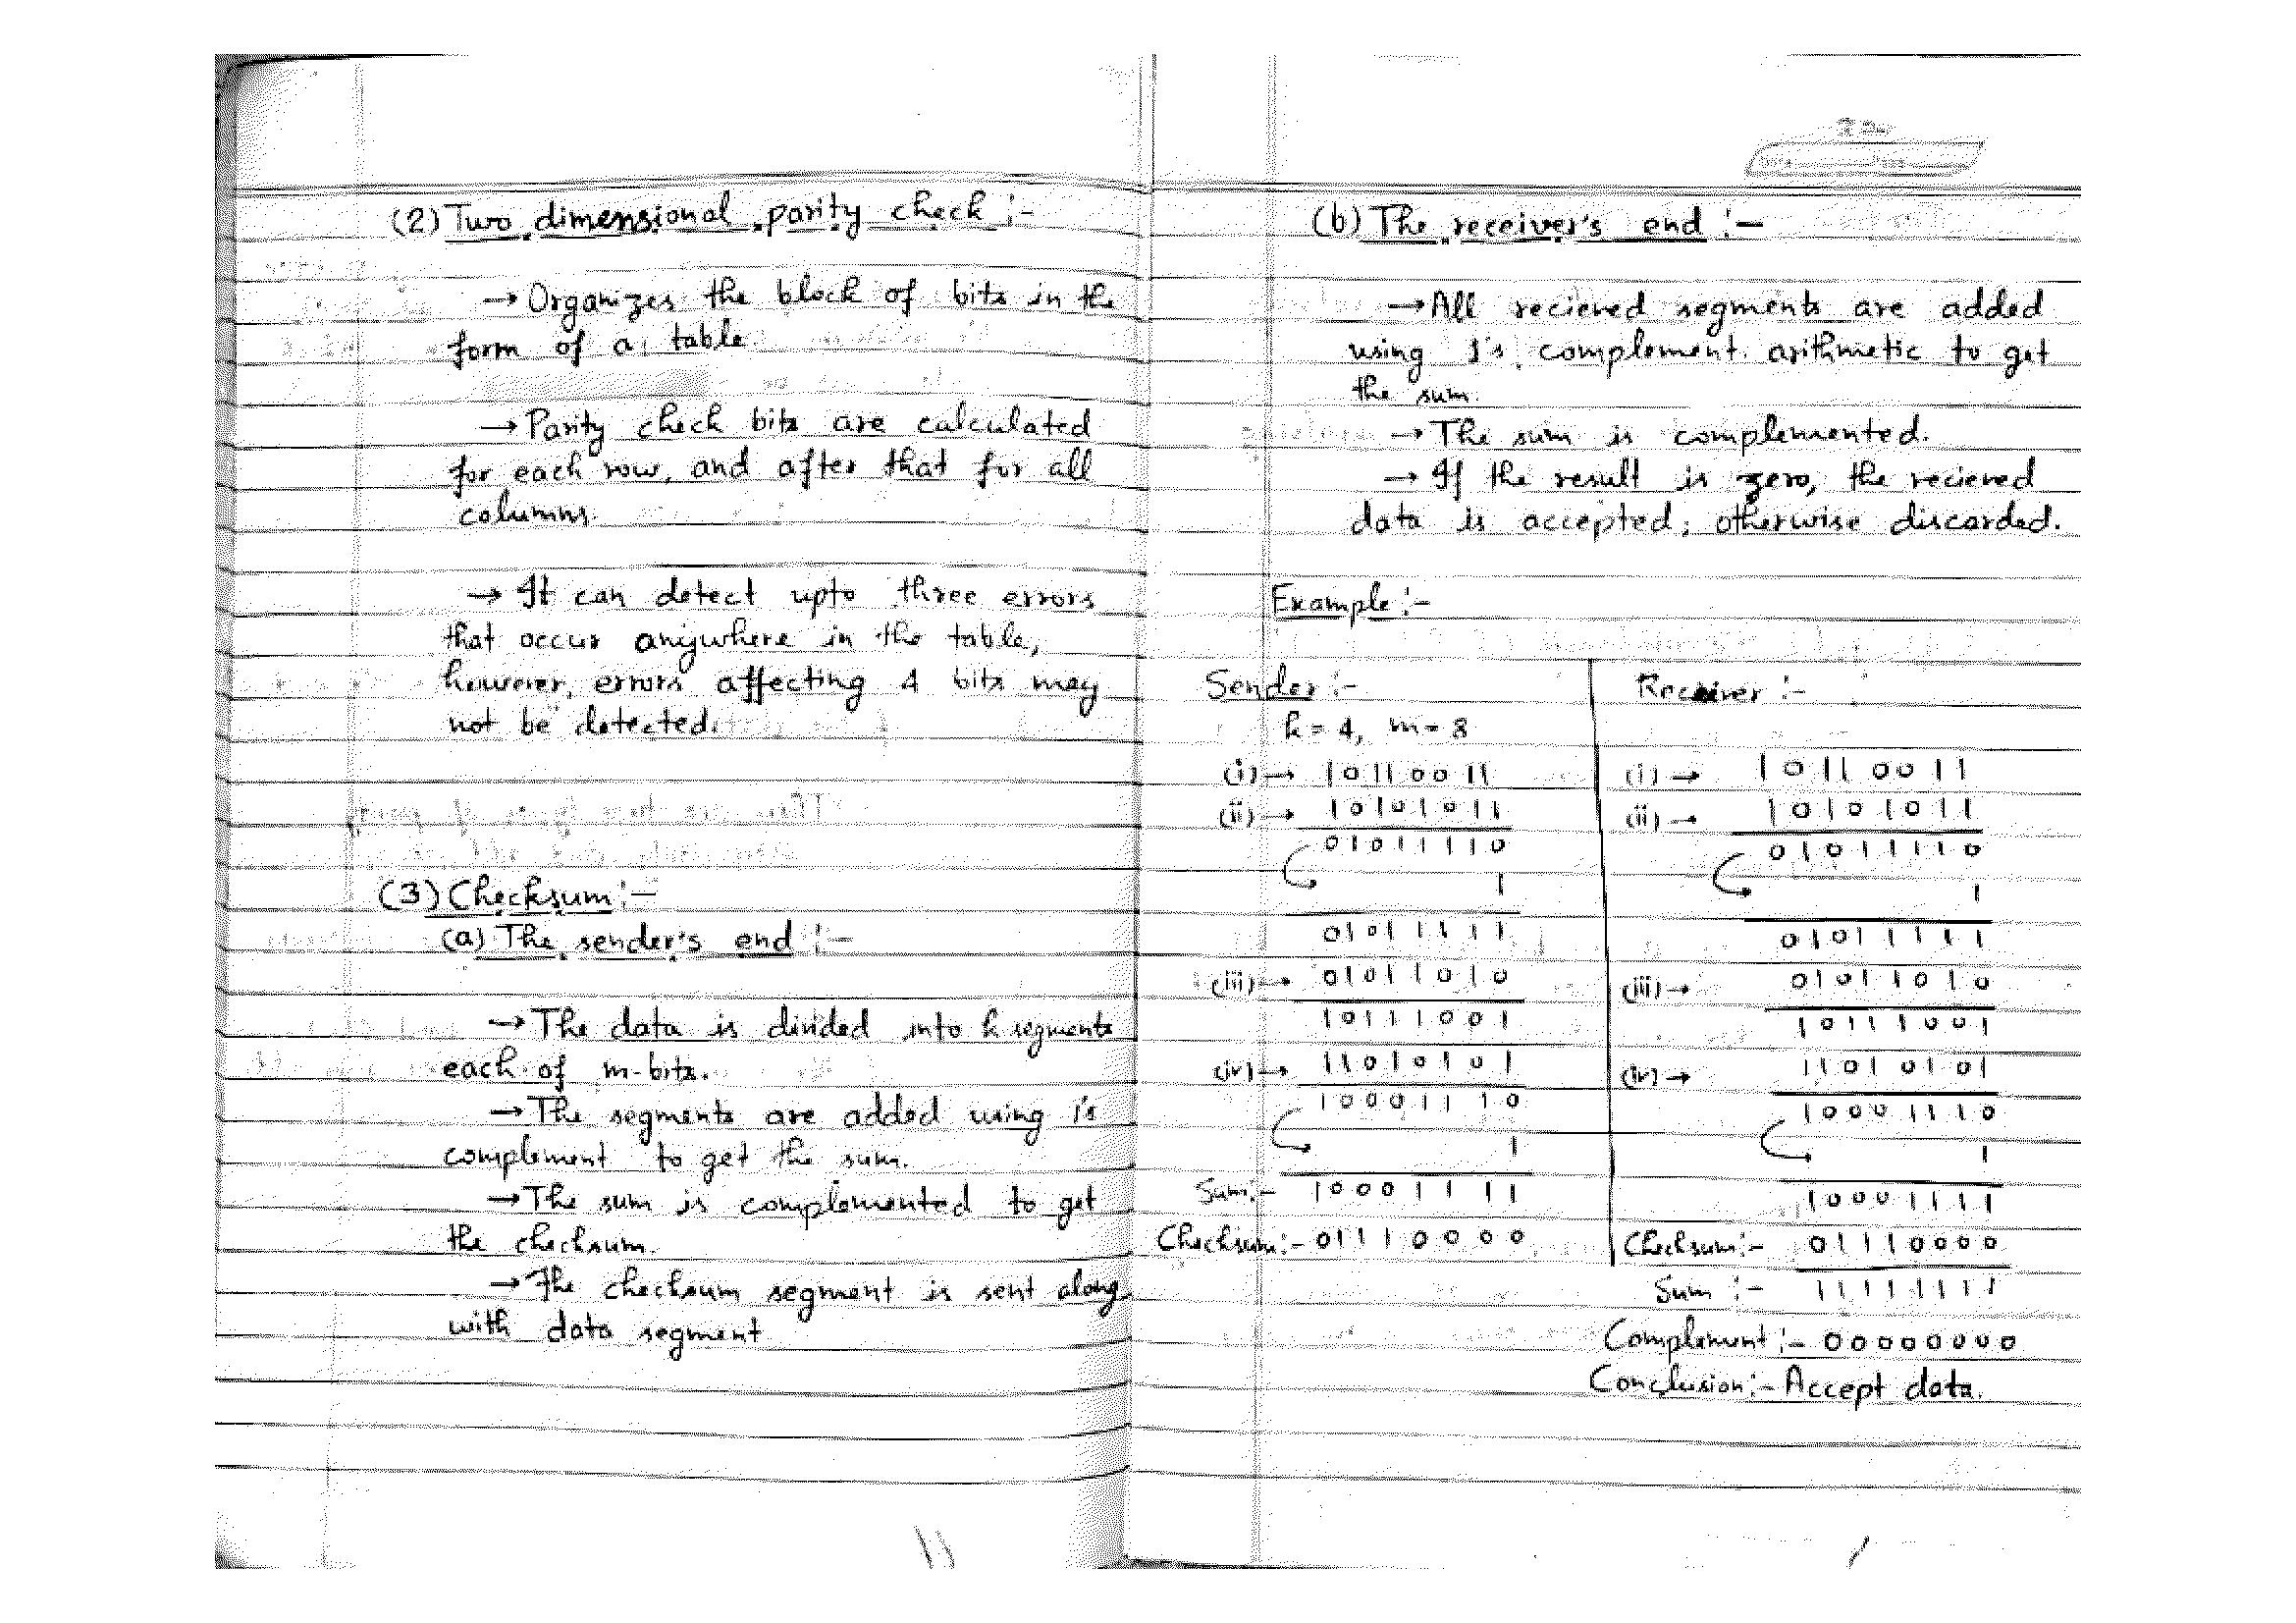 (2) Two dimensional parity check :-
→ Organizes the block of bits in the
form of a table
→ Parity check bits are calculated
for each row, and after that for all
columns.
→ It can detect upto three errors
that occur anywhere in the table,
however, errors affecting 4 bits may
not be detected.
(3) Checksum :-
(a) The sender's end :-
→ The data is divided into k segments
each of m-bits.
→ The segments are added using 1's
complement to get the sum.
→ The sum is complemented to get
the checksum.
→ The checksum segment is sent along
with data segment
(b) The receiver's end :-
→ All recieved segments are added
using 1's complement arithmetic to get
the sum.
→ The sum is complemented.
→ If the result is zero, the recieved
data is accepted; otherwise discarded.
Example :-
Sender :-
k = 4, m = 8
(i) → 10110011
(ii) → 10101011
01011110
1
01011111
(iii) → 01011010
10111001
(iv) → 11010101
10001110
1
Sum :- 10001111
Checksum :- 01110000
Receiver :-
(i) → 10110011
(ii) → 10101011
01011110
1
01011111
(iii) → 01011010
10111001
(iv) → 11010101
10001110
1
10001111
Checksum :- 01110000
Sum :- 11111111
Complement :- 00000000
Conclusion :- Accept data.